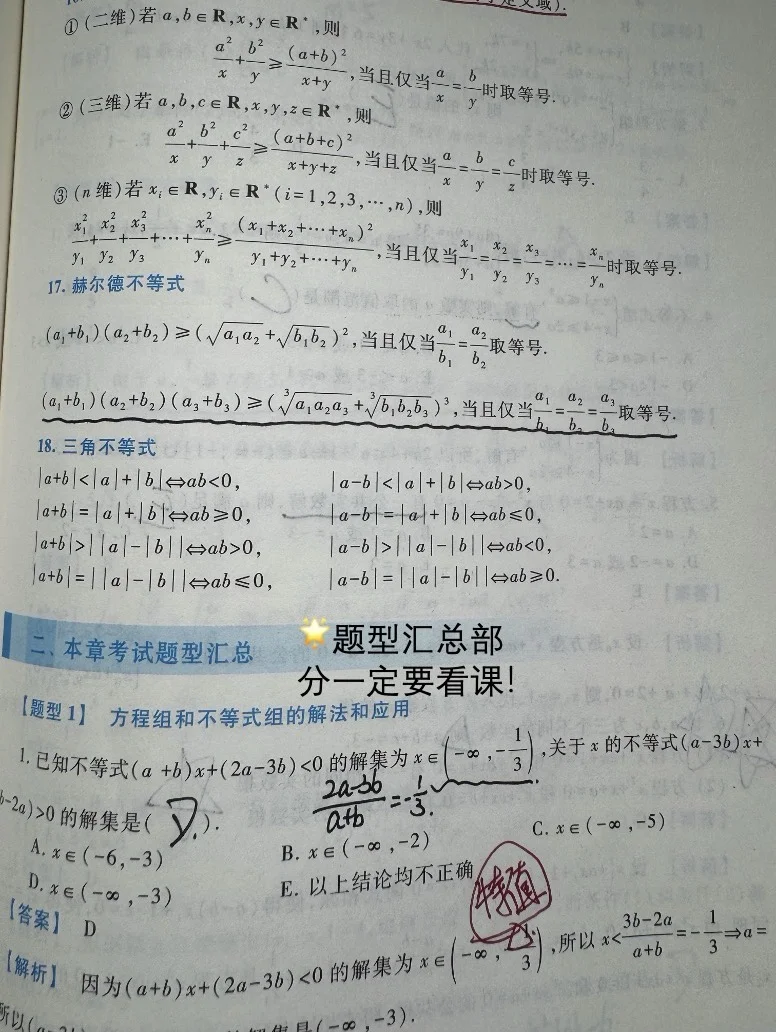 ①(二维)若 a,b∈R,x,y∈R⁺,则
a²/x+b²/y≥(a+b)²/(x+y),当且仅当a/x=b/y时取等号.
②(三维)若 a,b,c∈R,x,y,z∈R⁺,则
a²/x+b²/y+c²/z≥(a+b+c)²/(x+y+z),当且仅当a/x=b/y=c/z时取等号.
③(n 维)若 xᵢ∈R,yᵢ∈R⁺(i=1,2,3,⋯,n),则
x₁²/y₁+x₂²/y₂+x₃²/y₃+⋯+xₙ²/yₙ≥(x₁+x₂+⋯+xₙ)²/(y₁+y₂+⋯+yₙ),当且仅当x₁/y₁=x₂/y₂=x₃/y₃=⋯=xₙ/yₙ时取等号.
17. 赫尔德不等式
(a₁+b₁)(a₂+b₂)≥(√(a₁a₂)+√(b₁b₂))²,当且仅当a₁/b₁=a₂/b₂取等号.
(a₁+b₁)(a₂+b₂)(a₃+b₃)≥(∛(a₁a₂a₃)+∛(b₁b₂b₃))³,当且仅当a₁/b₁=a₂/b₂=a₃/b₃取等号.
18. 三角不等式
|a+b|<|a|+|b|⇔ab<0, |a-b|<|a|+|b|⇔ab>0,
|a+b|=|a|+|b|⇔ab≥0, |a-b|=|a|+|b|⇔ab≤0,
|a+b|>||a|-|b||⇔ab>0, |a-b|>||a|-|b||⇔ab<0,
|a+b|=||a|-|b||⇔ab≤0, |a-b|=||a|-|b||⇔ab≥0.
🌟题型汇总部
分一定要看课!
二、本章考试题型汇总
【题型1】 方程组和不等式组的解法和应用
1. 已知不等式(a+b)x+(2a-3b)<0 的解集为 x∈(-∞,-1/3),关于 x 的不等式(a-3b)x+
(b-2a)>0 的解集是( ).
(2a-3b)/(a+b)=-1/3.
A. x∈(-6,-3) B. x∈(-∞,-2) C. x∈(-∞,-5)
D. x∈(-∞,-3) E. 以上结论均不正确
特值
【答案】 D
【解析】 因为(a+b)x+(2a-3b)<0 的解集为 x∈(-∞,-1/3),所以 x<(3b-2a)/(a+b)=-1/3⇒a=
解集是(-∞,-3).